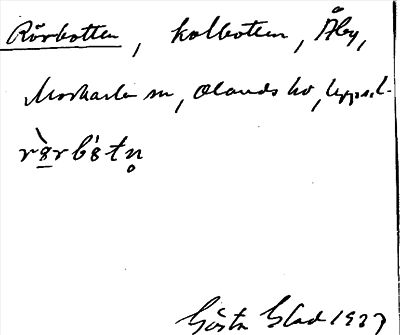 Rörbotten, kolbotten, Åby,
Morkarla sn, Olands hd, Uppsal.
rö̀rbót n̥
Gösta Glad 1927